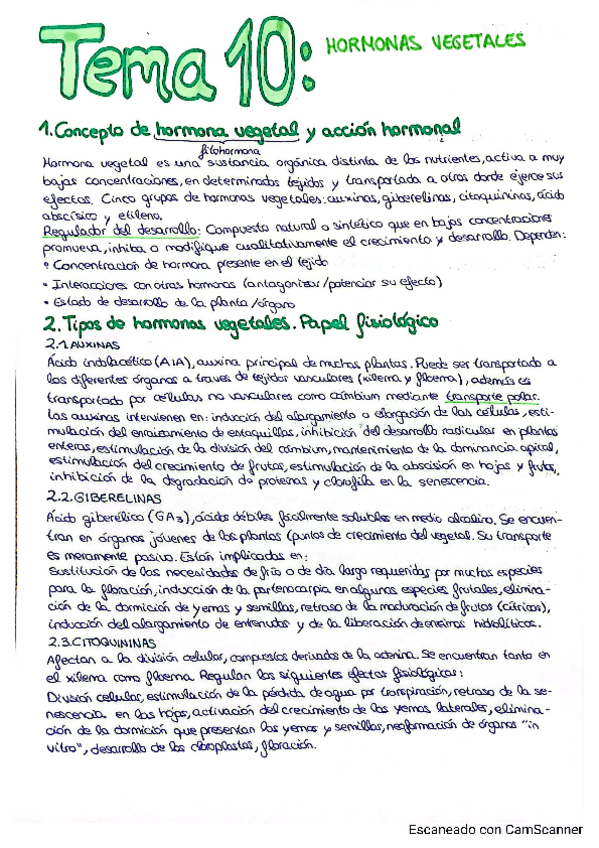 Tema 10: HORMONAS VEGETALES
1. Concepto de hormona vegetal y acción hormonal
fitohormona
Hormona vegetal es una sustancia orgánica distinta de los nutrientes, activa a muy
bajas concentraciones, en determinados tejidos y transportada a otros donde ejerce sus
efectos. Cinco grupos de hormonas vegetales: auxinas, giberelinas, citoquininas, ácido
abscísico y etileno.
Regulador del desarrollo: Compuesto natural o sintético que en bajas concentraciones
promueva, inhiba o modifique cualitativamente el crecimiento y desarrollo. Dependen:
• Concentración de hormona presente en el tejido
• Interacciones con otras hormonas (antagonizar/potenciar su efecto)
• Estado de desarrollo de la planta/órgano
2. Tipos de hormonas vegetales. Papel fisiológico
2.1 AUXINAS
Ácido indolacético (AIA), auxina principal de muchas plantas. Puede ser transportado a
los diferentes órganos a traves de tejidos vasculares (xilema y floema), además es
transportado por células no vasculares como cámbium mediante transporte polar.
Las auxinas intervienen en: inducción del alargamiento o elongación de las células, esti-
mulación del enraizamiento de estaquillas, inhibición del desarrollo radicular en plantas
enteras, estimulación de la división del cámbium, mantenimiento de la dominancia apical,
estimulación del crecimiento de frutos, estimulación de la abscisión en hojas y frutos,
inhibición de la degradación de proteínas y clorofila en la senescencia.
2.2. GIBERELINAS
Ácido giberélico (GA3), ácidos débiles facilmente solubles en medio alcalino. Se encuen-
tran en órganos jóvenes de las plantas (puntos de crecimiento del vegetal. Su transporte
es meramente pasivo. Están implicadas en:
Sustitución de las necesidades de frío o de día largo requeridas por muchas especies
para la floración, inducción de la partenocarpia en algunas especies frutales, elimina-
ción de la dormición de yemas y semillas, retraso de la maduración de frutos (cítricos),
inducción del alargamiento de entrenudos y de la liberación de enzimas hidrolíticos.
2.3. CITOQUININAS
Afectan a la división celular, compuestos derivados de la adenina. Se encuentran tanto en
el xilema como floema. Regulan los siguientes efectos fisiológicos:
División celular, estimulación de la pérdida de agua por transpiración, retraso de la se-
nescencia en las hojas, activación del crecimiento de las yemas laterales, elimina-
ción de la dormición que presentan las yemas y semillas, neoformación de órganos "in
vitro", desarrollo de los cloroplastos, floración.
Escaneado con CamScanner